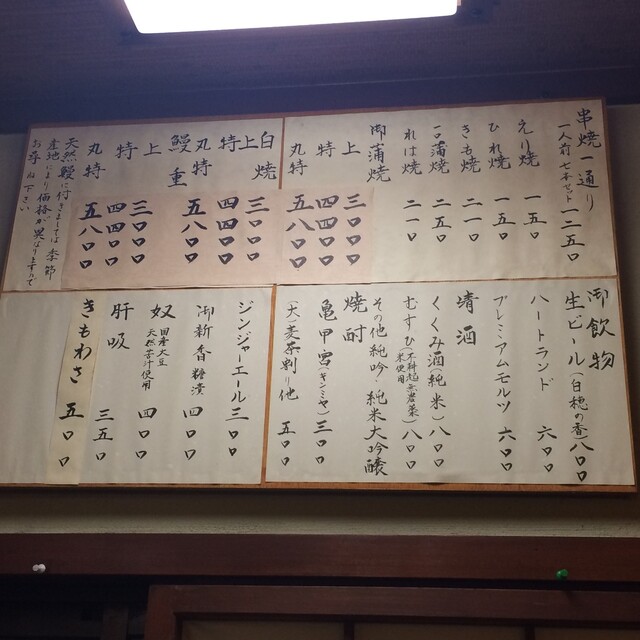 串焼一通り
一人前 七本セット 一二五〇
えり焼 一五〇
ひれ焼 一五〇
きも焼 二一〇
一口蒲焼 二五〇
れば焼 二一〇
御蒲焼
上 三〇〇〇
特 四四〇〇
丸特 五八〇〇
白焼
上 三〇〇〇
特 四四〇〇
丸特 五八〇〇
鰻重
上 三〇〇〇
特 四四〇〇
丸特 五八〇〇
天然鰻に付きましては 季節
産地により価格が異なりますので
お尋ね下さい
御飲物
生ビール(白穂の香) 八〇〇
ハートランド 六〇〇
プレミアムモルツ 六〇〇
清酒
くくみ酒(純米) 八〇〇
むすひ 八〇〇
その他純吟・純米大吟醸
焼酎
亀甲宮(キンミヤ) 三〇〇
(大)麦茶割り他 五〇〇
ジンジャーエール 三〇〇
御新香 糠漬 四〇〇
奴 国産大豆 天然苦汁使用 四〇〇
肝吸 三五〇
きもわさ 五〇〇